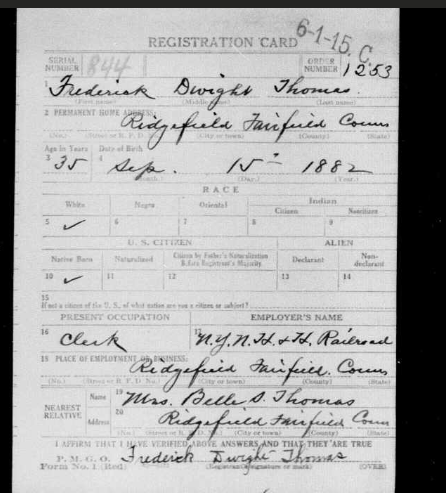 6-1-15, C.
REGISTRATION CARD
SERIAL NUMBER 844 ORDER NUMBER 1253
1 Frederick Dwight Thomas
(First name) (Middle name) (Last name)
2 PERMANENT HOME ADDRESS:
Ridgefield Fairfield Conn
(No.) (Street or R. F. D. No.) (City or town) (County) (State)
Age in Years Date of Birth
3 35 4 Sep. 15 - 1882
(Month.) (Day.) (Year.)
RACE
White Negro Oriental Indian
Citizen Noncitizen
5 ✓ 6 7 8 9
U. S. CITIZEN ALIEN
Native Born Naturalized Citizen by Father's Naturalization Before Registrant's Majority Declarant Non-declarant
10 ✓ 11 12 13 14
15
If not a citizen of the U. S., of what nation are you a citizen or subject?
PRESENT OCCUPATION EMPLOYER'S NAME
16 Clerk 17 N.Y.N.H. & H. Railroad
18 PLACE OF EMPLOYMENT OR BUSINESS:
Ridgefield Fairfield. Conn
(No.) (Street or R. F. D. No.) (City or town) (County) (State)
NEAREST RELATIVE
Name 19 Mrs. Belle S. Thomas
Address 20 Ridgefield Fairfield Conn
(No.) (Street or R. F. D. No.) (City or town) (County) (State)
I AFFIRM THAT I HAVE VERIFIED ABOVE ANSWERS AND THAT THEY ARE TRUE
P. M. G. O.
Form No. 1 (Red) Frederick Dwight Thomas
(Registrant's signature or mark) (OVER)